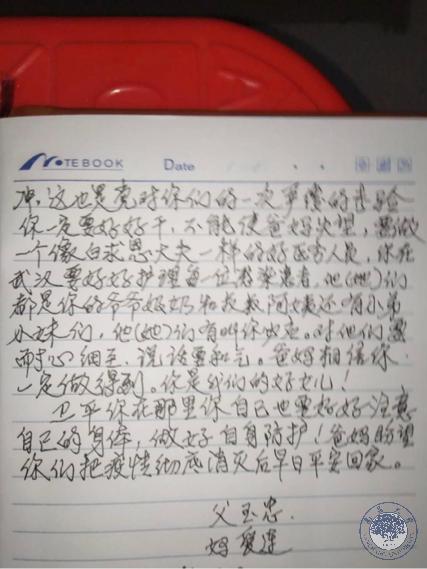 NOTEBOOK Date
这也是党对你们的一次考验
你一定要好好干,不能使爸妈失望,要做
一个像白求恩大夫一样的好医务人员,你在
武汉要好好护理每一位感染患者,他(她)们
都是你的爷爷奶奶和叔叔阿姨还有小弟
小妹们,他(她)们有。对他们要
耐心细至,说话要和气。爸妈相信你
一定做得到。你是我们的好女儿!
卫平你在那里你自己也要好好注意
自己的身体,做好自身防护!爸妈盼望
你们把疫情彻底消灭后早日平安回家。
父玉忠.
妈爱莲